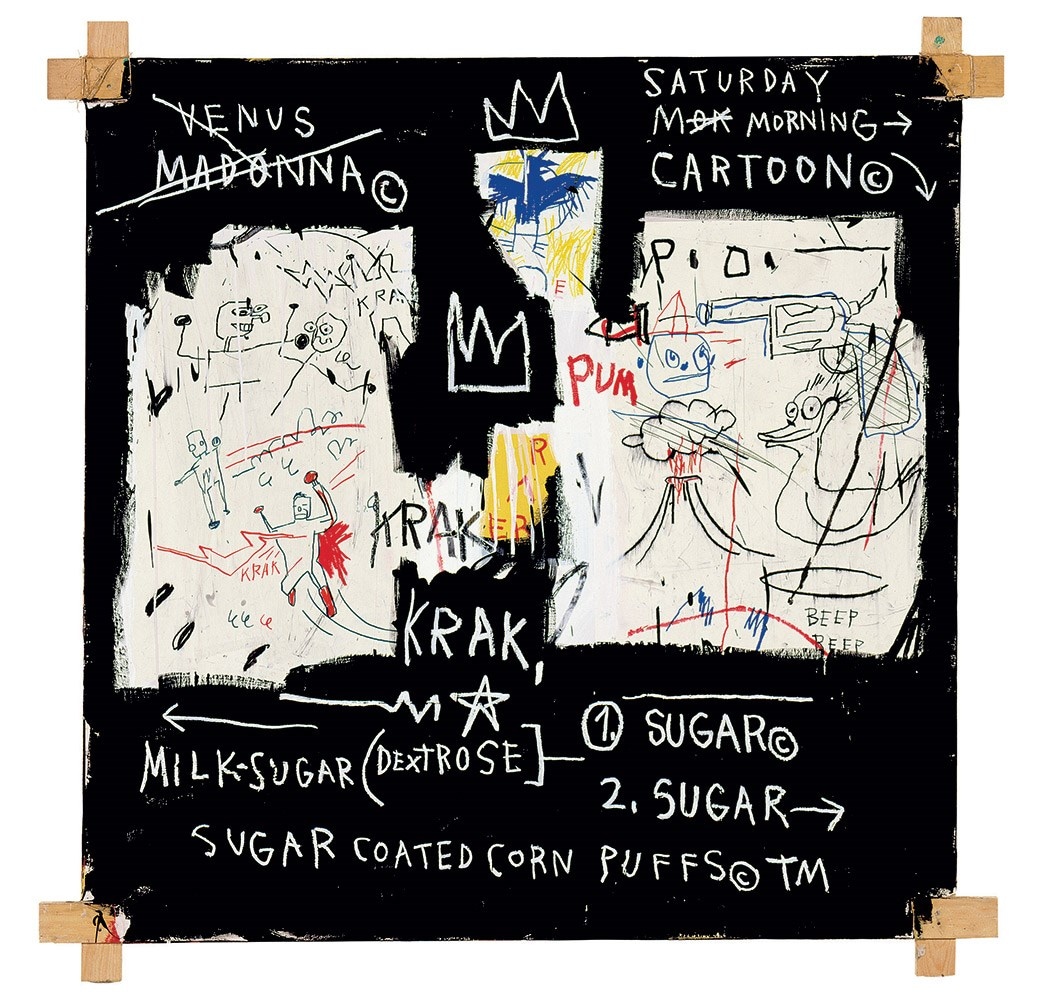 VENUS
MADONNA©
SATURDAY
MOR MORNING→
CARTOON©
P.O.
KRA
E
PUM
R
ER
KRAK
KRAK
KRAK,
BEEP
BEEP
① SUGAR©
MILK-SUGAR (DEXTROSE]
2. SUGAR→
SUGAR COATED CORN PUFFS© TM